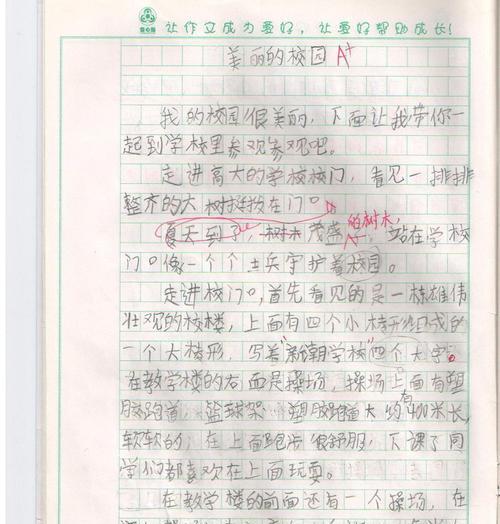 让作文成为爱好，让爱好帮助成长！
美丽的校园 A+
我的校园很美丽，下面让我带你一
起到学校里参观参观吧。
走进高大的学校校门，看见一排排
整齐的大树挺拔在门口
的树木，
夏天到了，树木茂盛 A+，站在学校
门口像一个个士兵守护着校园。
走进校门口，首先看见的是一栋雄伟
壮观的校楼，上面有四个小梯形组成的
一个大梯形，写着"新朝学校"四个大字。
在教学楼的右面是操场，操场上面有塑
有
胶跑道、篮球架，塑胶跑道大约400米长，
软软的，在上面跑步很舒服，下课了同
学们都喜欢在上面玩耍。
在教学楼的前面还有一个操场，在